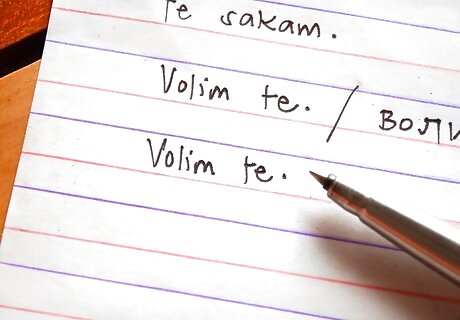 Te sakam.
Volim te. /
Volim te.